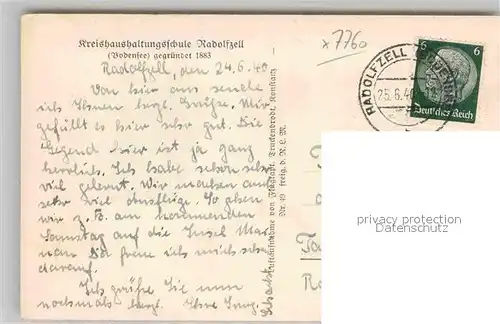 Kreishaushaltungsschule Radolfzell
(Bodensee) gegründet 1883
x7760
Radolfzell, den 24.6.40.
Von hier aus sende
ich Ihnen herzl. Grüße. Mir
gefällt es hier sehr gut. Die
Gegend hier ist ja ganz
herrlich. Ich habe schon sehr
viel gelernt. Wir machen auch
sehr viel Ausflüge. So gehen
wir z.B. am kommenden
Samstag auf die Insel Mai-
nau. Da freue ich mich schon
darauf.
Ich grüße Sie nun
nochmals herzl. Ihre
Truckenbrodt, Konstanz
Nr. 49 freig. d. R.L.M.
RADOLFZELL
25.6.40
6 6
Deutsches Reich
privacy protection
Datenschutz